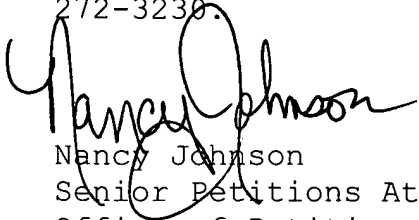 272-3230.
Nancy Johnson
Nancy Johnson
Senior Petitions At